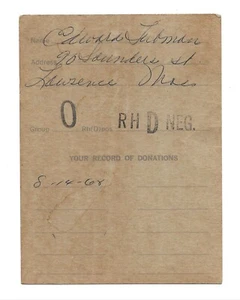 Name Edward Tubman
Address 90 Saunders St
Lawrence Mass
Group O RH D NEG.
YOUR RECORD OF DONATIONS
8-14-68